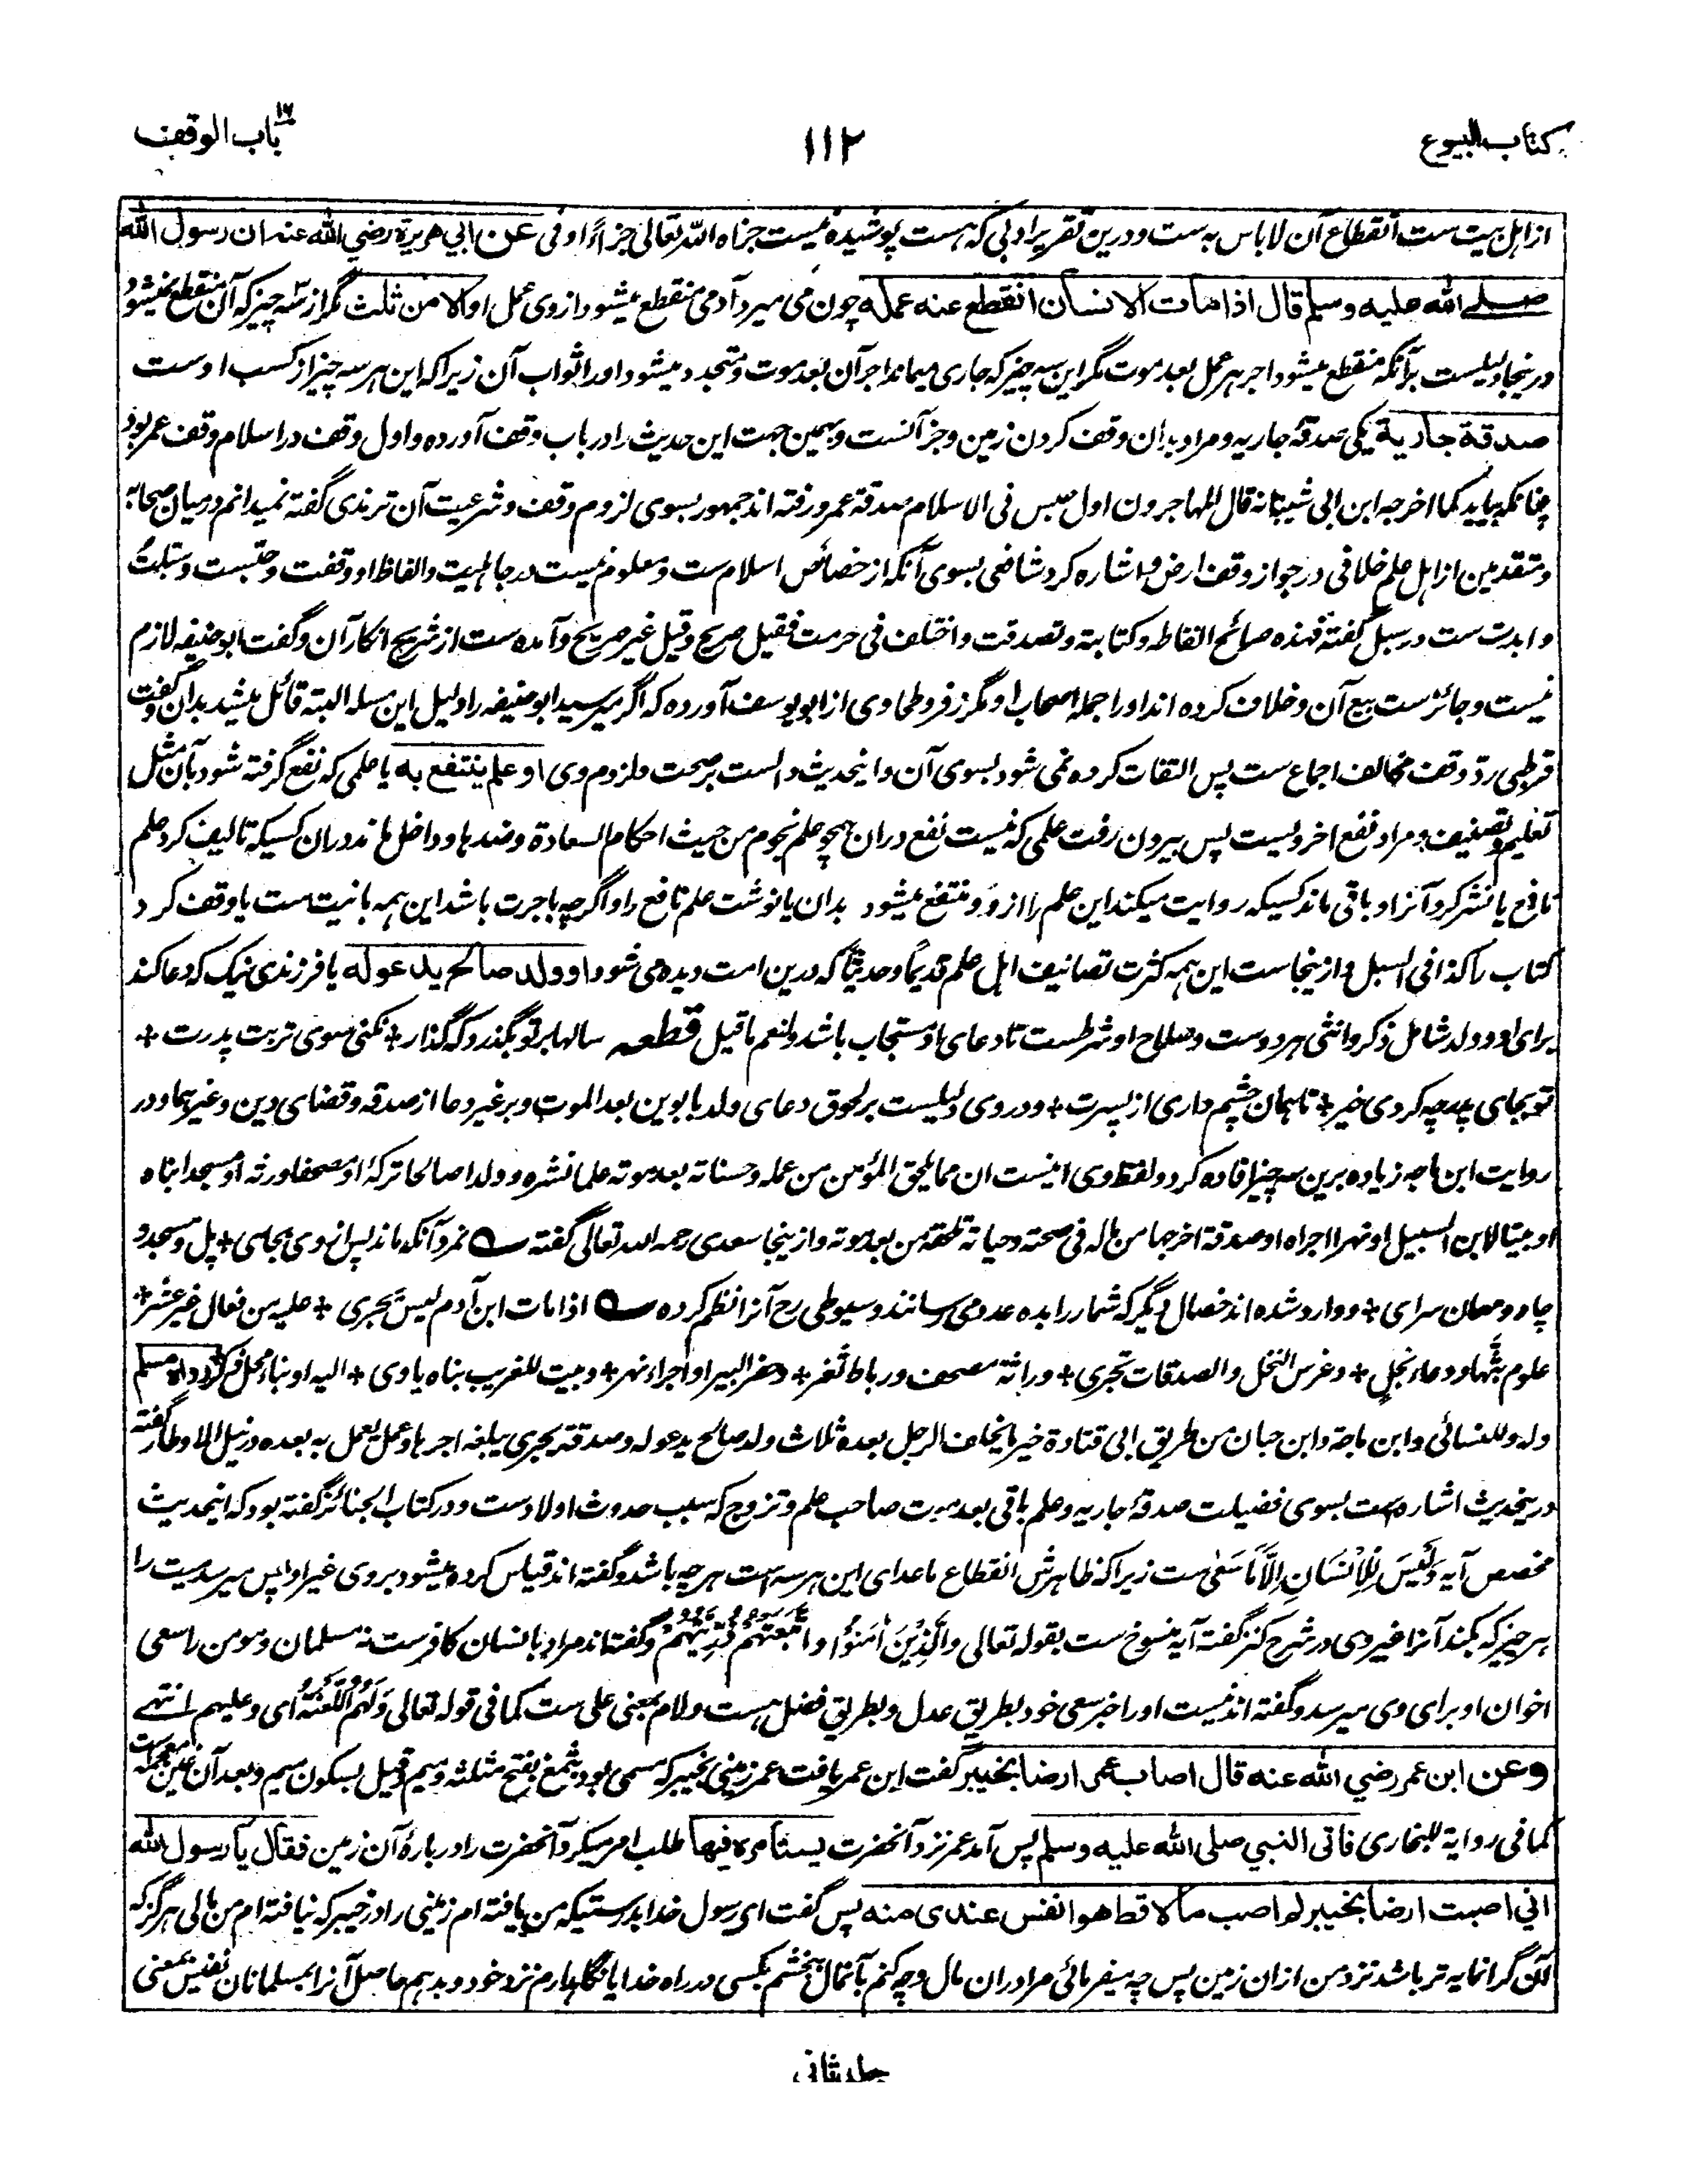 کتاب البیوع
۱۱۲
باب الوقف
۱۷
از اهل بیت ست انقطاع آن لا باس به ست و درین تقریر ادبی که هست پوشیده نیست جزاه الله تعالی جزاءً اوفی عن ابي هريرة رضي الله عنه ان رسول الله
صلى الله عليه وسلم قال اذا مات الانسان انقطع عنه عمله چون می میرد آدمی منقطع میشود از وی عمل او الا من ثلث مگر از سه چیز که آن منقطع نمیشود
درینجا دلیلست برآنکه منقطع میشود اجر هر عمل بعد موت مگر این سه چیز که جاری میماند اجر آن بعد موت و متجدد میشود او را ثواب آن زیرا که این هر سه چیز از کسب اوست
صدقة جارية یکی صدقهٔ جاریه و مراد بدان وقف کردن زمین و جز آنست و بهمین جهت این حدیث را در باب وقف آورده و اول وقف در اسلام وقف عمر بود
چنانکه بیاید کما اخرجه ابن ابی شیبة انه قال المهاجرون اول حبس فی الاسلام صدقة عمر و رفته اند جمهور بسوی لزوم وقف و شرعیت آن ترمذی گفته نمیدانم در میان صحابه
و متقدمین از اهل علم خلافی در جواز وقف ارض و اشاره کرد شافعی بسوی آنکه از خصائص اسلام ست و معلوم نیست در جاهلیت و الفاظ او وقفت و حبست و سبلت
و ابدت ست در سبل گفته فهذه صرائح الفاظه و کتابة و تصدقت و اختلف فی حرمت فقیل صریح و قیل غیر صریح و آمده ست از شریح انکار آن و گفت ابو حنیفه لازم
نیست و جائزست بیع آن و خلاف کرده اند او را جمله اصحاب او مگر زفر و طحاوی از ابو یوسف آورده که اگر میرسید ابو حنیفه را دلیل این مسئله البته قائل میشد بدان و گفت
قرطبی ردّ وقف مخالف اجماع ست پس التفات کرده نمی شود بسوی آن و اینحدیث دالست بر صحت و لزوم وی او علم ينتفع به یا علمی که نفع گرفته شود بآن مثل
تعلیم و تصنیف و مراد نفع اخرویست پس بیرون رفت علمی که نیست نفع دران همچو علم نجوم من حیث احکام السعادة و ضدها و داخل ماند دران کسیکه تالیف کرد علم
نافع یا نشر کرد آنرا و باقی ماند کسیکه روایت میکند این علم را از وَ و منتفع میشود بدان یا نوشت علم نافع را و اگرچه باجرت باشد این همه با نیت ست یا وقف کرد
کتاب را کذا فی السبل و ازینجاست این همه کثرت تصانیف اهل علم قدیماً و حدیثاً که درین امت دیده می شود او ولد صالح يدعو له یا فرزندی نیک که دعا کند
برای او و ولد شامل ذکر و انثی هر دوست و صلاح او شرطست تا دعای او مستجاب باشد و لنعم ما قیل قطعه سالها بر تو بگذرد که گذار + نکنی سوی تربت پدرت +
تو بجای پدر چه کردی خیر + تا همان چشم داری از پسرت + و در وی دلیلست بر لحوق دعای ولد بابوین بعد الموت و بر غیر دعا از صدقه و قضای دین و غیرهما و در
روایت ابن ماجه زیاده برین سه چیز افاده کرد و لفظ وی اینست ان مما یلحق المؤمن من عمله و حسناته بعد موته علما نشره و ولدا صالحا ترکه او مصحفا ورثه او مسجدا بناه
او بیتا لابن السبیل او نهرا اجراه او صدقة اخرجها من ماله فی صحته و حیاته تلحقه من بعد موته و ازینجا سعدی رحمه الله تعالی گفته نمرد آنکه ماند پس از وی بجای + پل و مسجد و
چاه و مهمان سرای + و وارد شده اند خصال دیگر که شمار را بده عدد می رسانند و سیوطی رح آنرا نظم کرده اذا مات ابن آدم لیس یجری + علیه من فعال غیر عشر +
علوم بثّها و دعاء نجل + و غرس النخل و الصدقات تجری + وراثة مصحف و رباط ثغر + و حفر البیر او اجراء نهر + و بیت للغریب بناه یاوی + الیه او بناء محل ذکر رواه مسلم
وله و للنسائی و ابن ماجة و ابن حبان من طریق ابی قتادة خیر ما یخلف الرجل بعده ثلاث ولد صالح یدعو له و صدقة تجری یبلغه اجرها و عمل یعمل به بعده در نیل الاوطار گفته
درینحدیث اشاره ست بسوی فضیلت صدقهٔ جاریه و علم باقی بعد موت صاحب علم و تزوج که سبب حدوث اولادست و در کتاب الجنائز گفته بود که اینحدیث
مخصص آیه وَلَيْسَ لِلْإِنْسَانِ إِلَّا مَا سَعٰى ست زیرا که ظاهرش انقطاع ماعدای این هر سه است هر چه باشد و گفته اند قیاس کرده میشود بر وی غیر او پس میرسد میت را
هر چیز که بکند آنرا غیر وی در شرح کنز گفته آیه منسوخ ست بقوله تعالی وَالَّذِيْنَ اٰمَنُوْا وَاتَّبَعَتْهُمْ ذُرِّيَّتُهُمْ و گفته اند مراد بانسان کافرست نه مسلمان و مومن را سعی
اخوان او برای وی میرسد و گفته اند نیست او را جز سعی خود بطریق عدل و بطریق فضل هست و لام بمعنی علی ست کما فی قوله تعالی وَلَهُمُ اللَّعْنَةُ ای و علیهم انتهى
وعن ابن عمر رضي الله عنه قال اصاب عمر ارضا بخيبر گفت ابن عمر یافت عمر زمینی بخیبر که مسمی بود بثمغ بفتح مثلثه و میم و قیل بسکون میم و بعد آن غین معجمه ست
کما فی روایة للبخاری فاتى النبي صلى الله عليه وسلم پس آمد عمر نزد آنحضرت يستأمره فيها طلب امر میکرد آنحضرت را در بارهٔ آن زمین فقال يا رسول الله
اني اصبت ارضا بخيبر لم اصب مالا قط هو انفس عندي منه پس گفت ای رسول خدا بدرستیکه من یافته ام زمینی را در خیبر که نیافته ام من مالی هرگز که
آن گرانمایه تر باشد نزد من ازان زمین پس چه میفرمائی مرا دران مال و چه کنم بآنمال ببخشم بکسی در راه خدا یا نگاهدارم نزد خود و بدهم حاصل آنرا بمسلمانان نفیس بمعنی
جلد ثانی